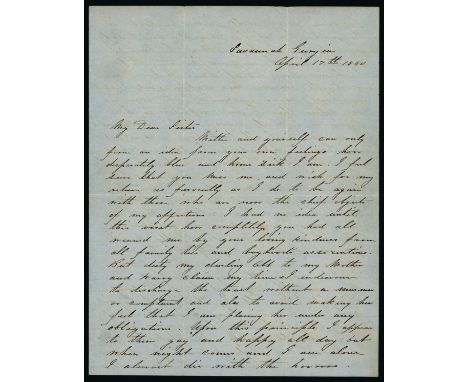 Savannah Georgia
April 17th 18
My Dear Sister
Mother and yourself can only
form an idea from your own feelings how
desperately blue and home sick I am. I feel
sure that you miss me and wish for my
return as fervently as I do to be again
with those who are now the chief objects
of my affections. I had no idea until
this visit how completely you had all
weaned me by your loving kindness from
all family ties and boyhoods associations.
But duty my darling Abb to my Mother
and Harry claim my time & I endeavour
to discharge the trust without a murmur
or complaint and also to avoid making them
feel that I am placing them under any
obligation. Upon this principle I appear
to them gay and happy all day but
when night comes and I am alone
I almost die with the horrors.